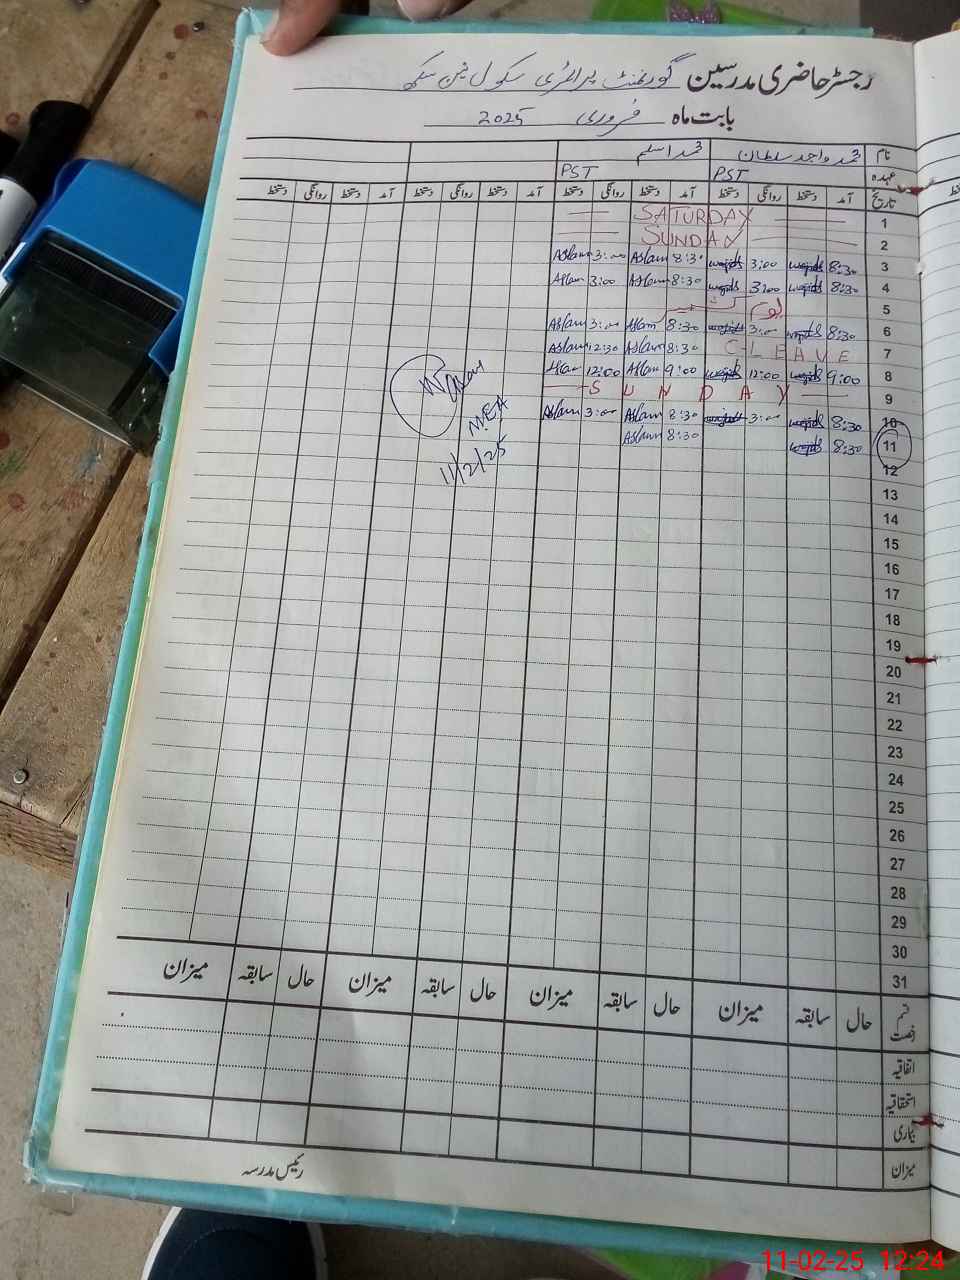 رجسٹر حاضری مدرسین گورنمنٹ پرائمری سکول
بابت ماہ فروری 2025
نام محمد واجد سلطان محمد اسلم
عہدہ PST PST
تاریخ آمد دستخط روانگی دستخط آمد دستخط روانگی دستخط آمد دستخط روانگی دستخط آمد دستخط روانگی دستخط
1 SATURDAY
2 SUNDAY
3 8:30 wajid 3:00 wajid 8:30 Aslam 3:00 Aslam
4 8:30 wajid 3:00 wajid 8:30 Aslam 3:00 Aslam
5
6 8:30 wajid 3:00 wajid 8:30 Aslam 3:00 Aslam
7 C-LEAVE 8:30 Aslam 12:30 Aslam
8 9:00 wajid 12:00 wajid 9:00 Aslam 12:00 Aslam
9 SUNDAY
10 8:30 wajid 3:00 wajid 8:30 Aslam 3:00 Aslam
11 8:30 wajid 8:30 Aslam
MEA
11/2/25
12
13
14
15
16
17
18
19
20
21
22
23
24
25
26
27
28
29
30
31
قسم رخصت حال سابقہ میزان حال سابقہ میزان حال سابقہ میزان حال سابقہ میزان
اتفاقیہ
استحقاقیہ
بیماری
میزان
رئیس مدرسہ
11-02-25 12:24